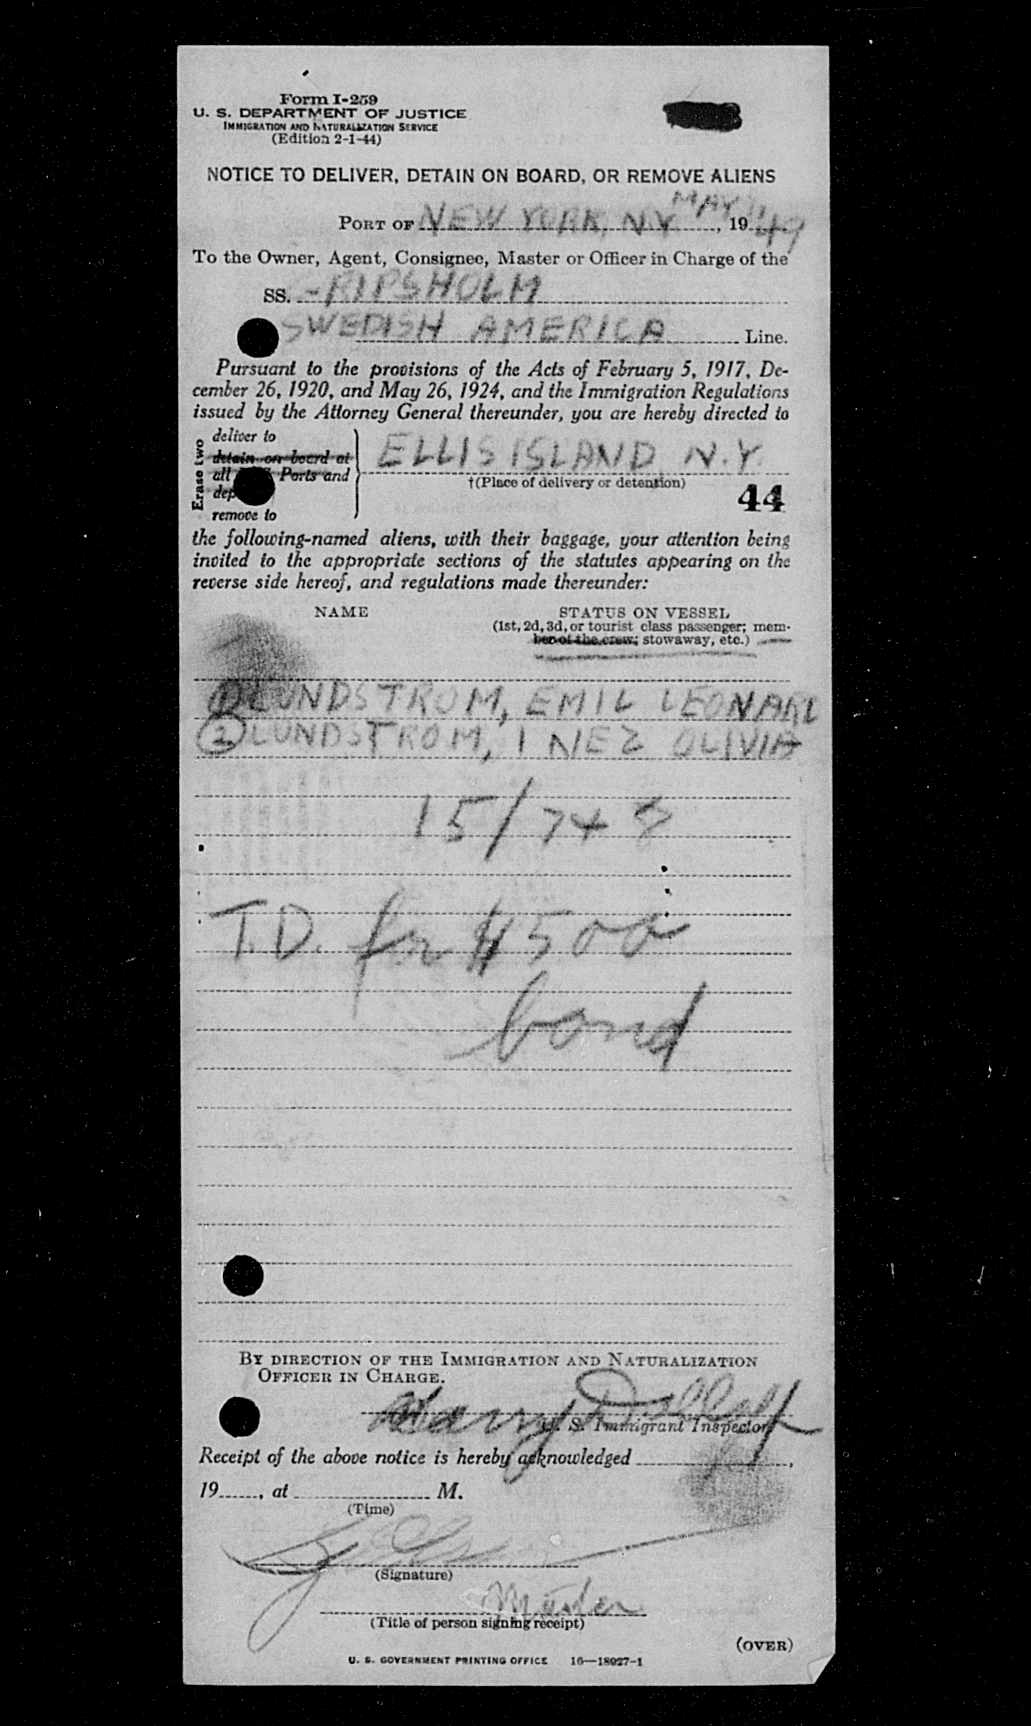 Form I-259
U. S. DEPARTMENT OF JUSTICE
IMMIGRATION AND NATURALIZATION SERVICE
(Edition 2-1-44)
NOTICE TO DELIVER, DETAIN ON BOARD, OR REMOVE ALIENS
MAY
PORT OF NEW YORK, N.Y., 19 49
To the Owner, Agent, Consignee, Master or Officer in Charge of the
SS. -RIPSHOLM
SWEDISH AMERICA Line.
Pursuant to the provisions of the Acts of February 5, 1917, De-
cember 26, 1920, and May 26, 1924, and the Immigration Regulations
issued by the Attorney General thereunder, you are hereby directed to
Erase two
deliver to
detain on board at
all Ports and
dep
remove to
ELLIS ISLAND, N.Y.
†(Place of delivery or detention)
44
the following-named aliens, with their baggage, your attention being
invited to the appropriate sections of the statutes appearing on the
reverse side hereof, and regulations made thereunder:
NAME STATUS ON VESSEL
(1st, 2d, 3d, or tourist class passenger; mem-
ber of the crew; stowaway, etc.)
1 LUNDSTROM, EMIL LEONARD
2 LUNDSTROM, INEZ OLIVIA
15/748
T.D. for $500
bond
BY DIRECTION OF THE IMMIGRATION AND NATURALIZATION
OFFICER IN CHARGE.
Harry
U. S. Immigrant Inspector
Receipt of the above notice is hereby acknowledged ,
19 , at M.
(Time)
(Signature)
Master
(Title of person signing receipt)
(OVER)
U. S. GOVERNMENT PRINTING OFFICE 16—18027-1